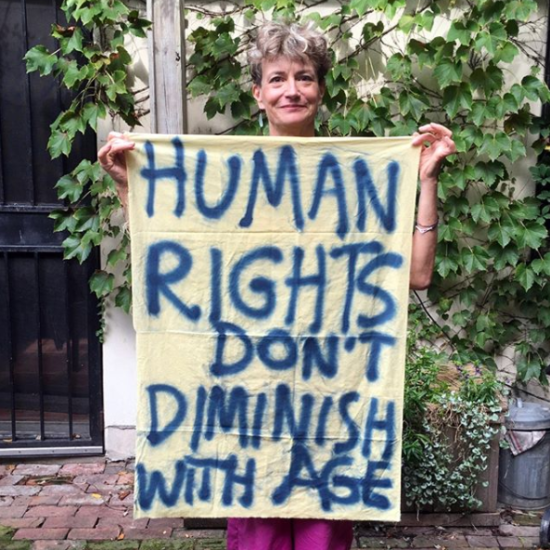 HUMAN
RIGHTS
DON'T
DIMINISH
WITH AGE